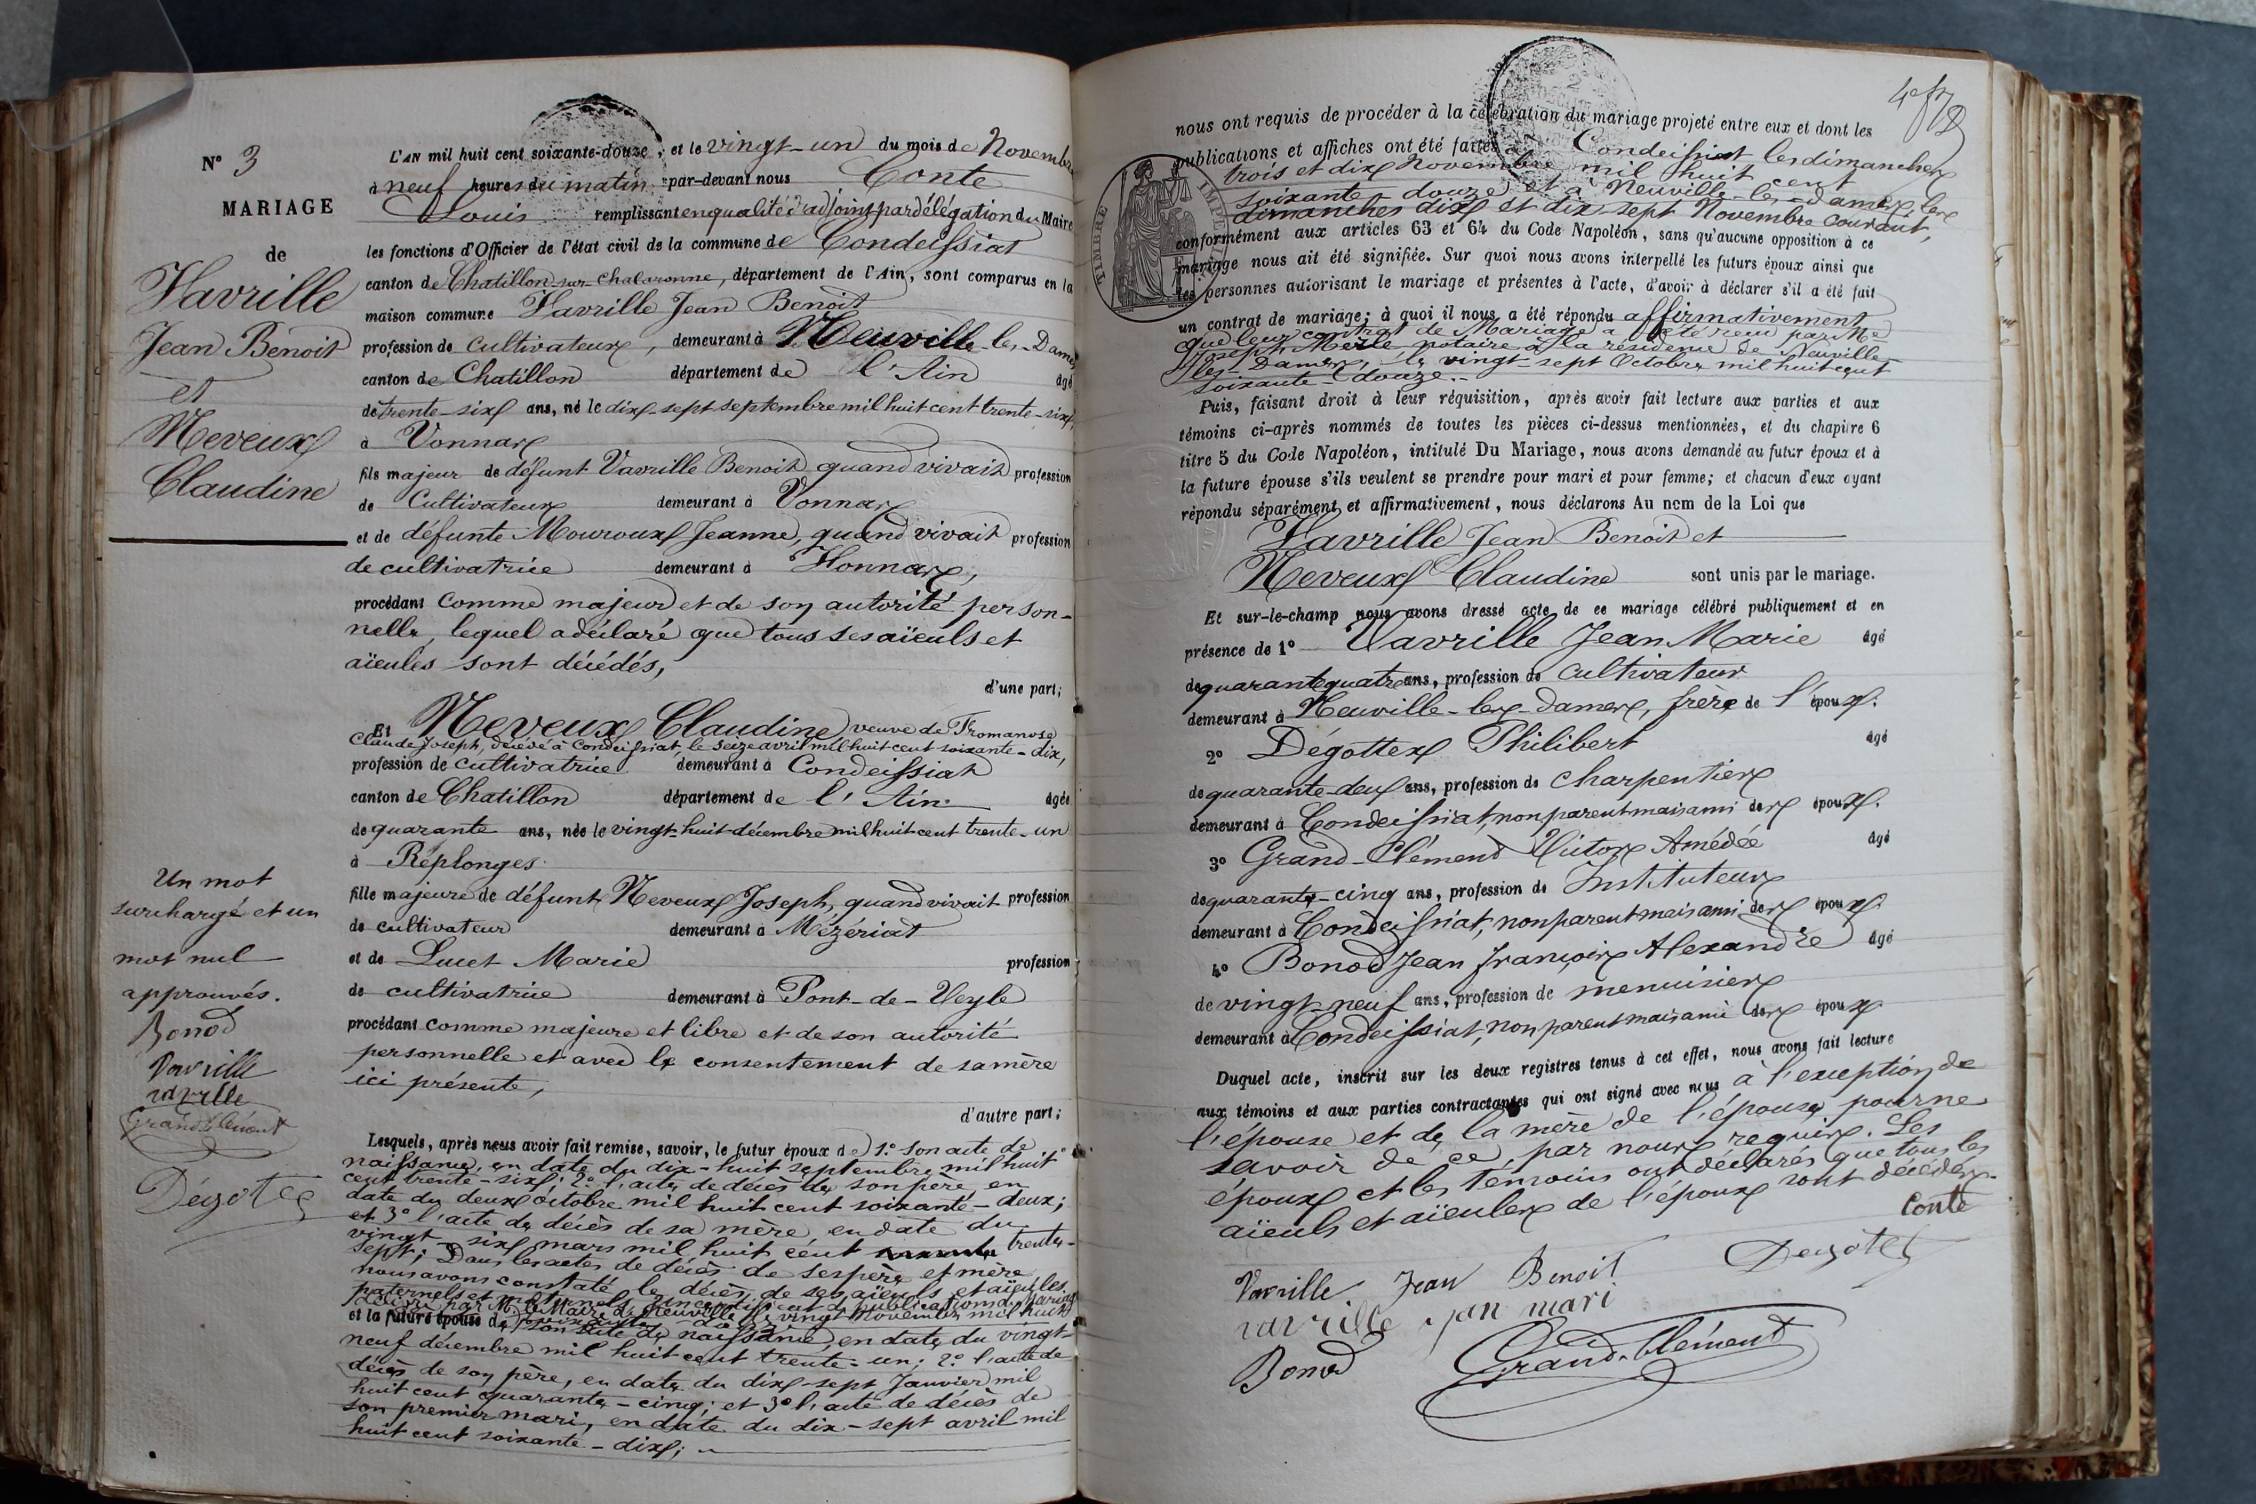 N° 3
MARIAGE
de
Vavrille
Jean Benoit
et
Neveux
Claudine
Un mot
surchargé et un
mot nul
approuvés.
Bonod
Vavrille
vavrille
Grand-Clément
Dégottex
L'AN mil huit cent soixante-douze, et le vingt-un du mois de Novembre
à neuf heures du matin par-devant nous Conte
Louis remplissant en qualité d'adjoint par délégation du Maire
les fonctions d'Officier de l'état civil de la commune de Condeissiat
canton de Chatillon-sur-Chalaronne, département de l'Ain, sont comparus en la
maison commune Vavrille Jean Benoit
profession de cultivateur, demeurant à Neuville-les-Dames
canton de Chatillon département de l'Ain âgé
de trente-six ans, né le dix-sept septembre mil huit cent trente-six,
à Vonnas
fils majeur de défunt Vavrille Benoit quand vivait profession
de Cultivateur demeurant à Vonnas
et de défunte Mouroux Jeanne, quand vivait profession
de cultivatrice demeurant à Vonnas,
procédant comme majeur et de son autorité person-
nelle, lequel a déclaré que tous ses aïeuls et
aïeules sont décédés,
d'une part;
Et Neveux Claudine veuve de Fromanose
Claude Joseph, décédé à Condeissiat, le seize avril mil huit cent soixante-dix,
profession de cultivatrice demeurant à Condeissiat
canton de Chatillon département de l'Ain. âgée
de quarante ans, née le vingt-huit décembre mil huit cent trente-un
à Réplonges.
fille majeure de défunt Neveux Joseph, quand vivait profession
de cultivateur demeurant à Mézériat
et de Lucet Marie profession
de cultivatrice demeurant à Pont-de-Veyle
procédant comme majeure et libre et de son autorité
personnelle et avec le consentement de sa mère
ici présente,
d'autre part;
Lesquels, après nous avoir fait remise, savoir, le futur époux de 1° son acte de
naissance, en date du dix-huit septembre mil huit
cent trente-six; 2° l'acte de décès de son père en
date du deux octobre mil huit cent soixante-deux;
et 3° l'acte de décès de sa mère, en date du
vingt six mars mil huit cent trente-
sept; Dans les actes de décès de ses père et mère
nous avons constaté le décès de ses aïeuls et aïeules
paternels et maternels, publications de Mariage
délivré par M. le Maire de Neuville le vingt Novembre mil huit
et la future épouse de son acte de naissance, en date du vingt-
neuf décembre mil huit cent trente-un; 2° l'acte de
décès de son père, en date du dix-sept Janvier mil
huit cent quarante-cinq; et 3° l'acte de décès de
son premier mari, en date du dix-sept avril mil
huit cent soixante-dix;
nous ont requis de procéder à la célébration du mariage projeté entre eux et dont les
publications et affiches ont été faites à Condeissiat les dimanches
trois et dix Novembre mil huit cent
soixante-douze et à Neuville-les-dames, les
dimanches dix et dix-sept Novembre courant,
conformément aux articles 63 et 64 du Code Napoléon, sans qu'aucune opposition à ce
mariage nous ait été signifiée. Sur quoi nous avons interpellé les futurs époux ainsi que
les personnes autorisant le mariage et présentes à l'acte, d'avoir à déclarer s'il a été fait
un contrat de mariage; à quoi il nous a été répondu affirmativement
que leur contrat de Mariage a été reçu par Me
Joseph Merle notaire à la résidence de Neuville-
les-Dames, le vingt-sept Octobre mil huit cent
soixante-douze.
Puis, faisant droit à leur réquisition, après avoir fait lecture aux parties et aux
témoins ci-après nommés de toutes les pièces ci-dessus mentionnées, et du chapitre 6
titre 5 du Code Napoléon, intitulé Du Mariage, nous avons demandé au futur époux et à
la future épouse s'ils veulent se prendre pour mari et pour femme; et chacun d'eux ayant
répondu séparément et affirmativement, nous déclarons Au nom de la Loi que
Vavrille Jean Benoit et
Neveux Claudine sont unis par le mariage.
Et sur-le-champ nous avons dressé acte de ce mariage célébré publiquement et en
présence de 1° Vavrille Jean Marie âgé
de quarante quatre ans, profession de cultivateur
demeurant à Neuville-les-dames, frère de l'époux.
2° Dégottex Philibert âgé
de quarante-deux ans, profession de charpentier
demeurant à Condeissiat, non parent mais ami des époux.
3° Grand-Clément Victor Amédée âgé
de quarante-cinq ans, profession de Instituteur
demeurant à Condeissiat, non parent mais ami des époux.
4° Bonod Jean François Alexandre âgé
de vingt-neuf ans, profession de menuisier
demeurant à Condeissiat, non parent mais ami des époux
Duquel acte, inscrit sur les deux registres tenus à cet effet, nous avons fait lecture
aux témoins et aux parties contractantes qui ont signé avec nous à l'exception de
l'épouse et de la mère de l'épouse pour ne
savoir de ce par nous requis. Les
époux et les témoins ont déclarés que tous les
aïeuls et aïeules de l'époux sont décédés.
Conte
Vavrille Jean Benoit Degotex
vavrille jan mari
Bonod Grand-Clément
TIMBRE IMP